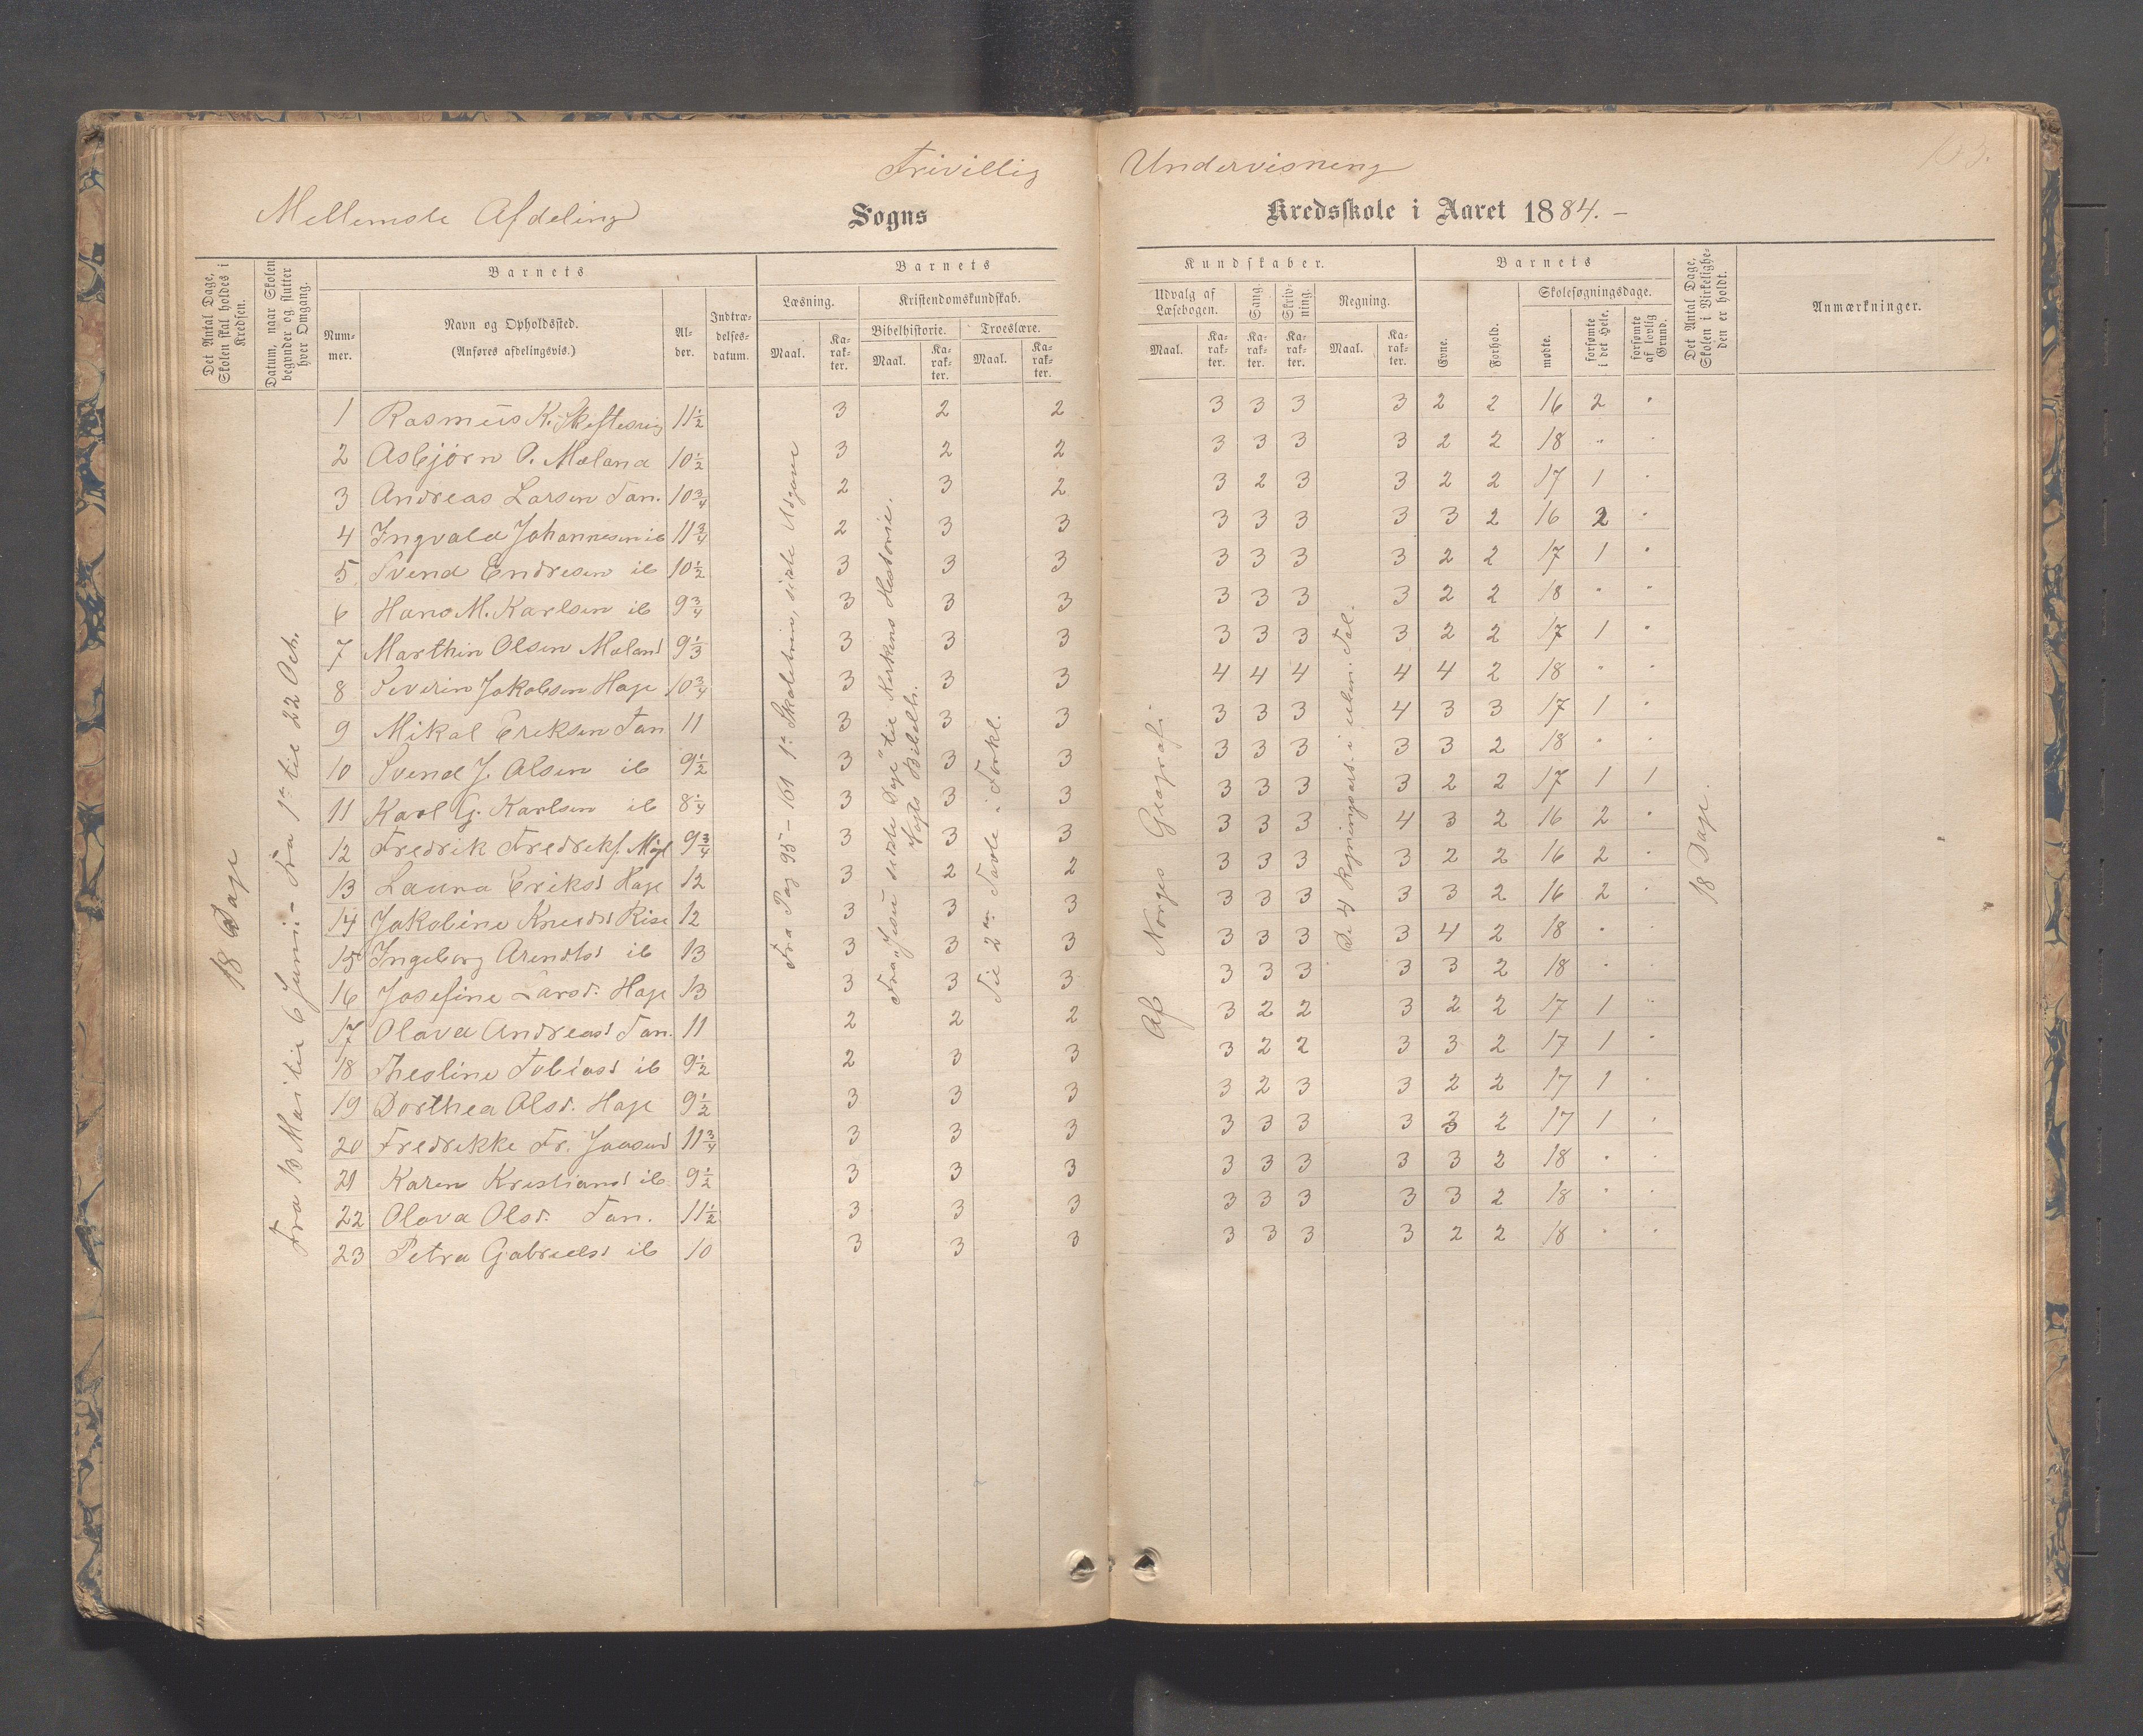 Frivillig Undervisning
Mellemste Afdeling Sogns Kredsskole i Aaret 1884. –
Det Antal Dage, Skolen skal holdes i Kredsen.
Datum, naar Skolen begynder og slutter hver Omgang.
Barnets
Num-mer.
Navn og Opholdssted.
(Anføres afdelingsvis.)
Al-der.
Indtræ-delses-datum.
Barnets
Læsning.
Maal.
Ka-rak-ter.
Kristendomskundskab.
Bibelhistorie.
Maal.
Ka-rak-ter.
Troeslære.
Maal.
Ka-rak-ter.
Kundskaber.
Udvalg af Læsebogen.
Maal.
Ka-rak-ter.
Sang.
Ka-rak-ter.
Skriv-ning.
Ka-rak-ter.
Regning.
Maal.
Ka-rak-ter.
Barnets
Evne.
Forhold.
Skolesøgningsdage.
mødte.
forsømte i det Hele.
forsømte af lovlig Grund.
Det Antal Dage, Skolen i Virkelighe-den er holdt.
Anmærkninger.
18 Dage
Fra 13 Mai til 6 Juni – Fra 1ste til 22 Oct.
Fra Pag 95 – 161 1ste Skoletrin, sidste Udgave
Fra „Jesu sidste Dage" til Kirkens Historie.
Vogts Bibelh.
Til 2den Tavle i Forkl.
Af Norges Geografi.
De 4 Regningsart. i uben. Tal.
18 Dage.
1 Rasmus K. 11½ 3 2 2 3 3 3 3 2 2 16 2 "
2 Asbjørn P. Meland 10½ 3 2 2 3 3 3 3 2 2 18 " "
3 Andreas Larsen Tan. 10¾ 2 3 2 3 2 3 3 2 2 17 1 "
4 Ingvald Johannesen ib 11¾ 2 3 3 3 3 3 3 3 2 16 2 "
5 Svend Endresen ib 10½ 3 3 3 3 3 3 3 2 2 17 1 "
6 Hans M. Karlsen ib 9¾ 3 3 3 3 3 3 3 2 2 18 " "
7 Marthin Olsen Meland 9⅓ 3 3 3 3 3 3 3 2 2 17 1 "
8 Severin Jakobsen Hage 10¾ 3 3 3 4 4 4 4 4 2 18 " "
9 Mikal Eriksen Tan 11 3 3 3 3 3 3 4 3 3 17 1 "
10 Svend J. Olsen ib 9½ 3 3 3 3 3 3 3 3 2 18 " "
11 Karl G. Karlsen ib 8¼ 3 3 3 3 3 3 3 2 2 17 1 1
12 Fredrik Fredriks. 9¾ 3 3 3 3 3 3 4 3 2 16 2 "
13 Laura Eriksd Hage 12 3 2 2 3 3 3 3 2 2 16 2 "
14 Jakobine Knudsd Rise 12 3 3 3 3 3 3 3 3 2 16 2 "
15 Ingeborg Arendtsd ib 13 3 3 3 3 3 3 3 4 2 18 " "
16 Josefine Larsd. Hage 13 3 3 3 3 3 3 3 3 2 18 " "
17 Olava Andreasd Tan. 11 2 2 2 3 2 2 3 2 2 17 1 "
18 Theoline Tobiasd ib 9½ 2 3 3 3 2 2 3 3 2 17 1 "
19 Dorthea Olsd. Hage 9½ 3 3 3 3 2 3 3 2 2 17 1 "
20 Fredrikke Fr. Jaasund 11¾ 3 3 3 3 3 3 3 3 2 17 1 "
21 Karen Kristiansd ib 9½ 3 3 3 3 3 3 3 3 2 18 " "
22 Olava Olsd. Tan. 11½ 3 3 3 3 3 3 3 3 2 18 " "
23 Petra Gabrielsd ib 10 3 3 3 3 3 3 3 2 2 18 " "